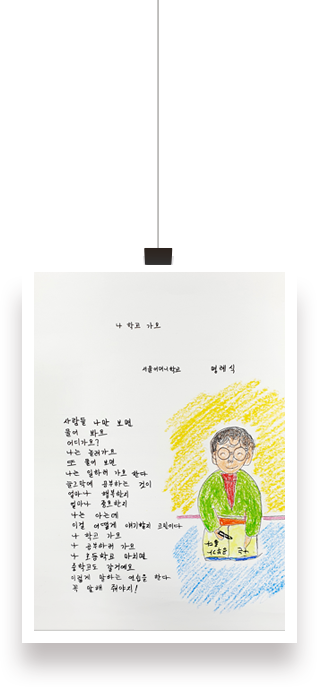 나 학교 가요
서울어머니학교 명례식
사람들 나만 보면
물어 봐요
어디가요?
나는 놀러가요
또 물어 보면
나는 일하러 가요 한다
글그막에 공부하는 것이
얼마나 행복한지
얼마나 좋은한지
나는 아는데
이걸 어떻게 얘기할지 고민이다
나 학교 가요
나 공부하러 가요
나 초등학교 마치면
중학교도 갈거에요
이렇게 말하는 연습을 한다
꼭 말해 줘야지!